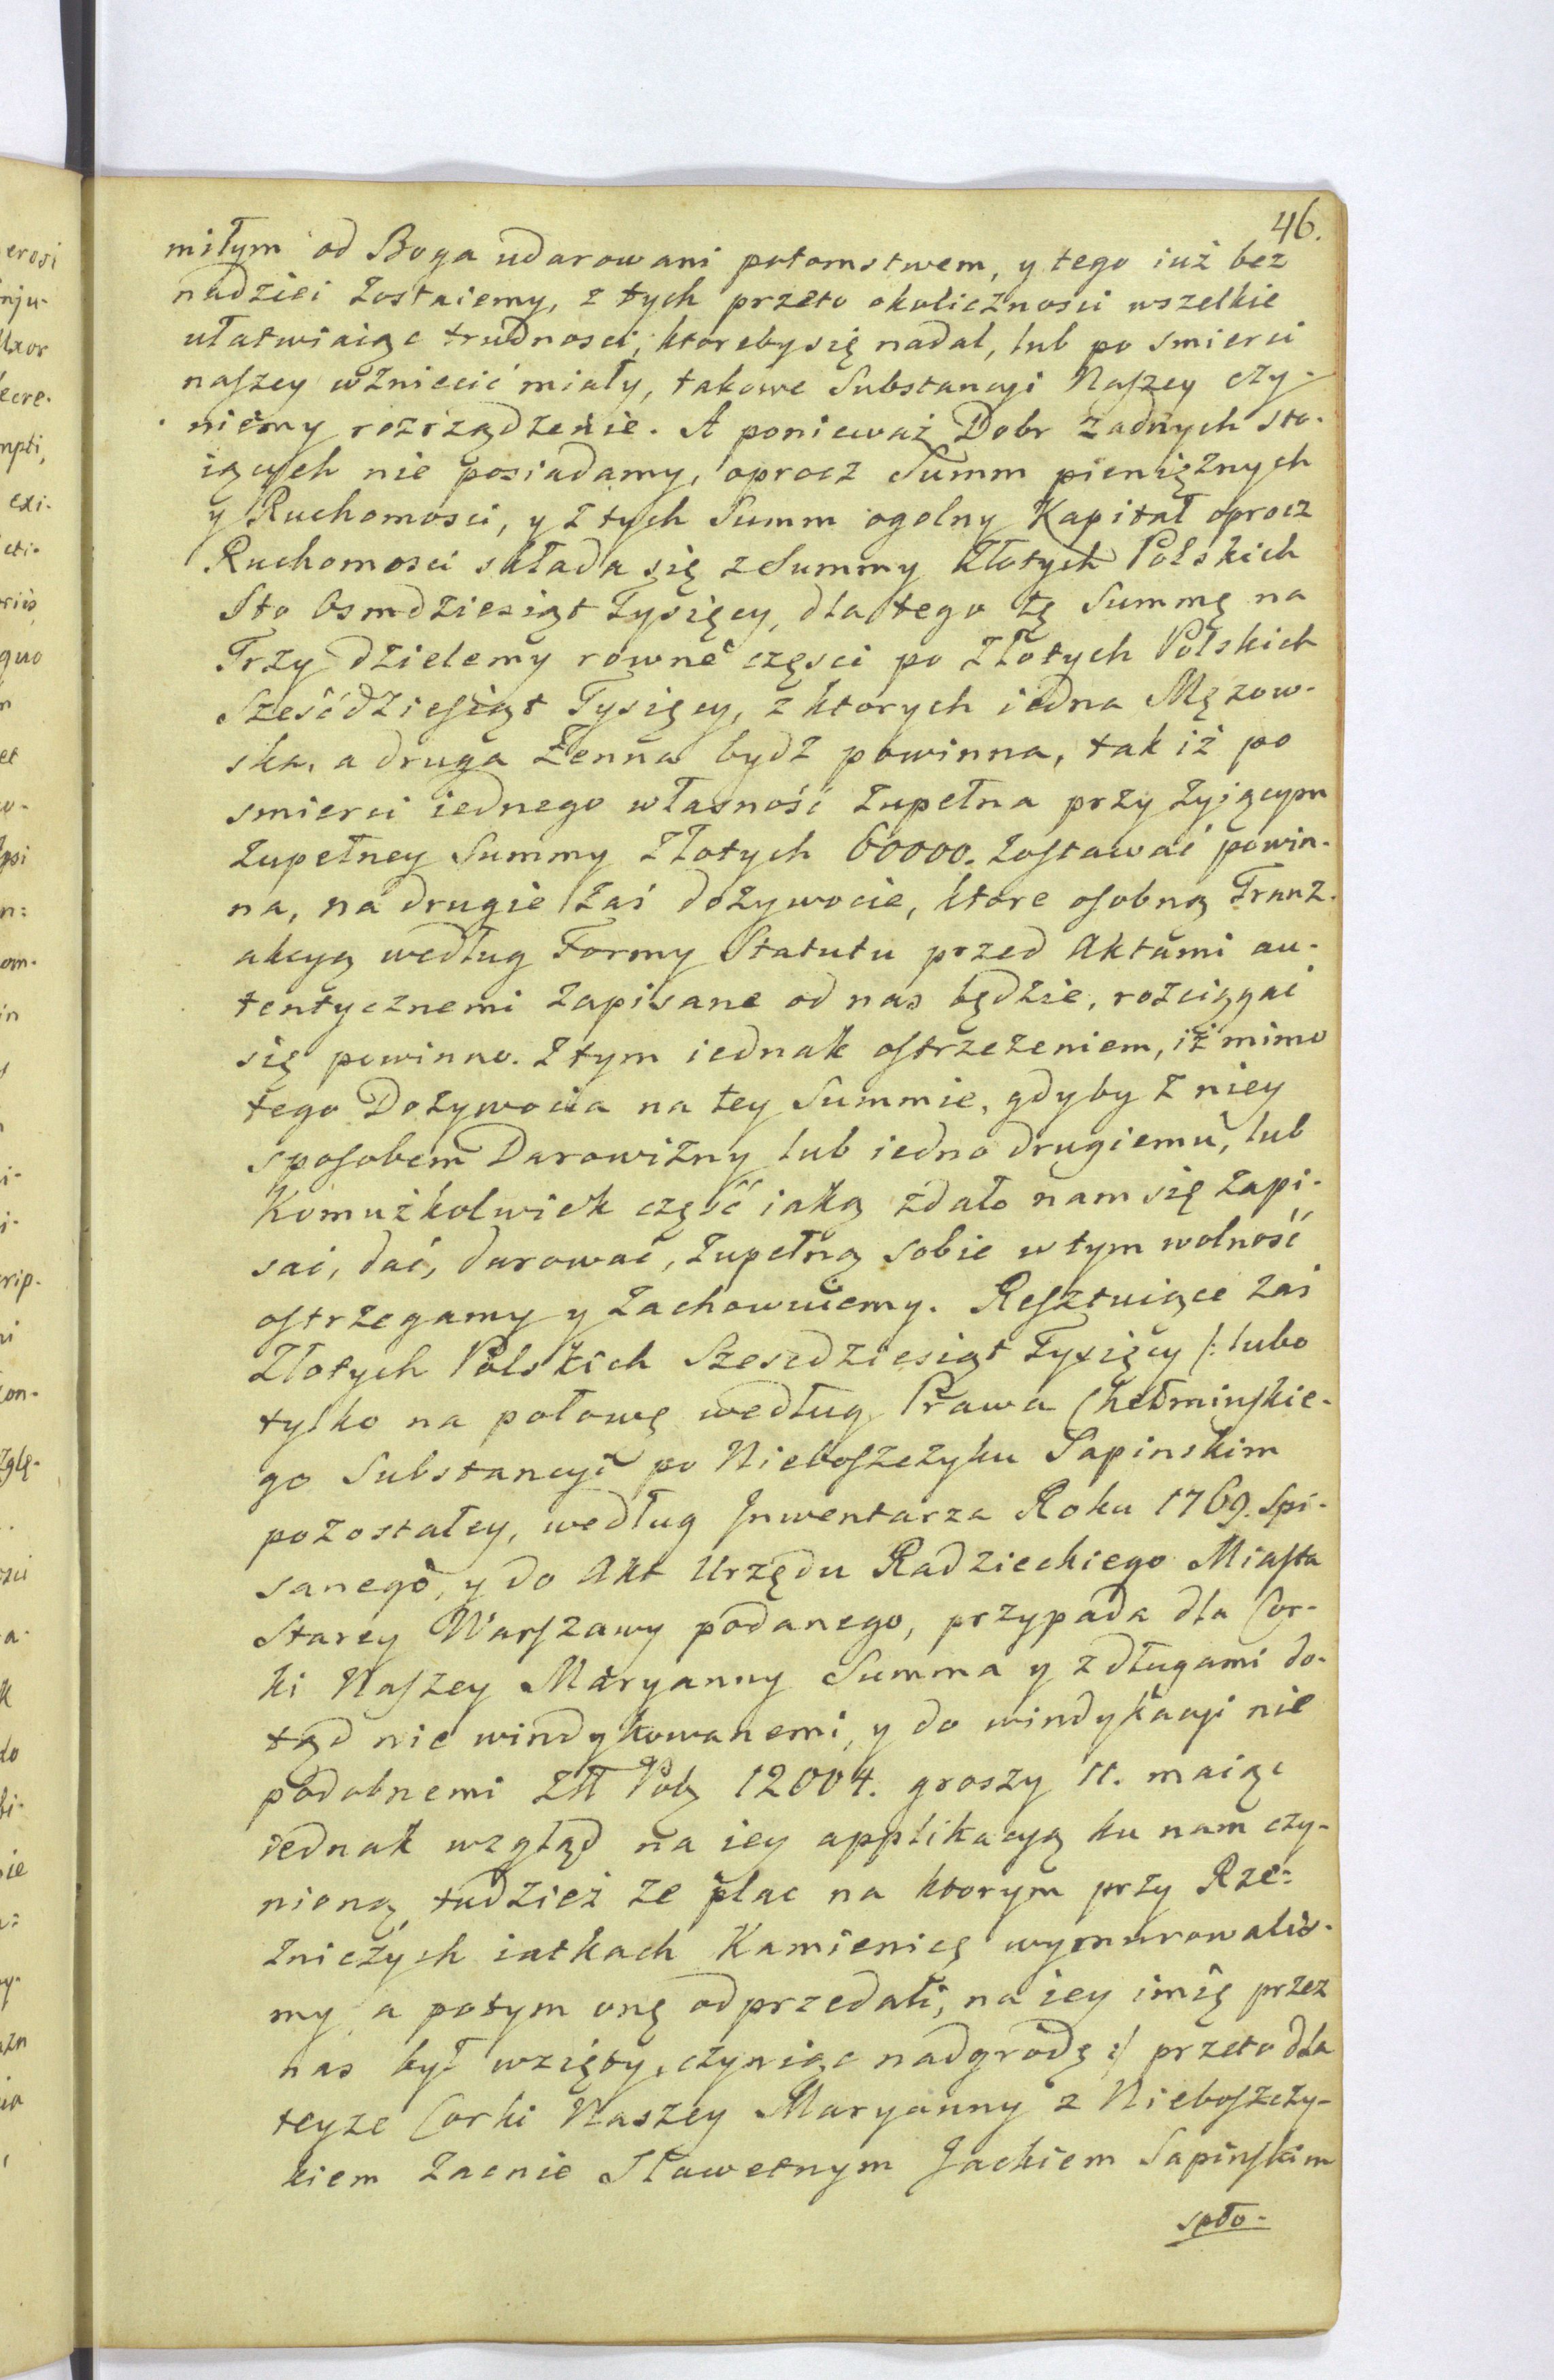 46.
miłym od Boga udarowani potomstwem, y tego iuż bez
nadziei zostaiemy, z tych przeto okolicznosci wszelkie
ułatwiaiąc trudnosci, ktoreby się nadal, lub po smierci
naszey wzniecić miały, takowe Substancyi Naszey czy-
niemy rozrządzenie. A ponieważ Dobr zadnych sto-
iących nie posiadamy, oprocz Summ pieniężnych
y Ruchomosci, y z tych Summ ogolny Kapitał oprocz
Ruchomosci składa się z Summy Złotych Polskich
Sto Osmdziesiąt Tysięcy, dla tego tę Summę na
Trzy dzielemy rowne częsci po Złotych Polskich
Sześćdziesiąt Tysięcy, z ktorych iedna Męzow-
ska, a druga Żenna bydz powinna, tak iż po
smierci iednego własność zupełna przy żyiącym
zupełney Summy Złotych 60000. zostawać powin-
na, na drugie zaś dożywocie, ktore osobną Tranz-
akcyą według Formy Statutu przed Aktami au-
tentycznemi zapisane od nas będzie, rozciągać
się powinno. Z tym iednak ostrzezeniem, iż mimo
tego Dożywocia na tey Summie, gdyby z niey
sposobem Darowizny lub iedno drugiemu, lub
Komużkolwiek część iaką zdało nam się zapi-
sać, dać, darować, zupełną sobie w tym wolność
ostrzegamy y zachowuiemy. Resztuiące zaś
Złotych Polskich Szesćdziesiąt Tysięcy /: lubo
tylko na połowę według Prawa Chełminskie-
go Substancyi po Nieboszczyku Sapinskim
pozostałey, według Inwentarza Roku 1769. spi-
sanego, y do Akt Urzędu Radzieckiego Miasta
Starey Warszawy podanego, przypada dla Cor-
ki Naszey Maryanny Summa y z długami do-
tąd nie windykowanemi, y do windykacyi nie
podobnemi Zł Pol 12004. groszy 11. maiąc
iednak wzgląd na iey applikacyą ku nam czy-
nioną, tudzież ze plac na ktorym przy Rze-
zniczych iatkach Kamienicę wymurowalis-
my, a potym onę odprzedali, na iey imię przez
nas był wzięty, czyniąc nadgrodę :/ przeto dla
teyze Corki Naszey Maryanny z Nieboszczy-
kiem Zacnie Sławetnym Jackiem Sapinskim
spło-